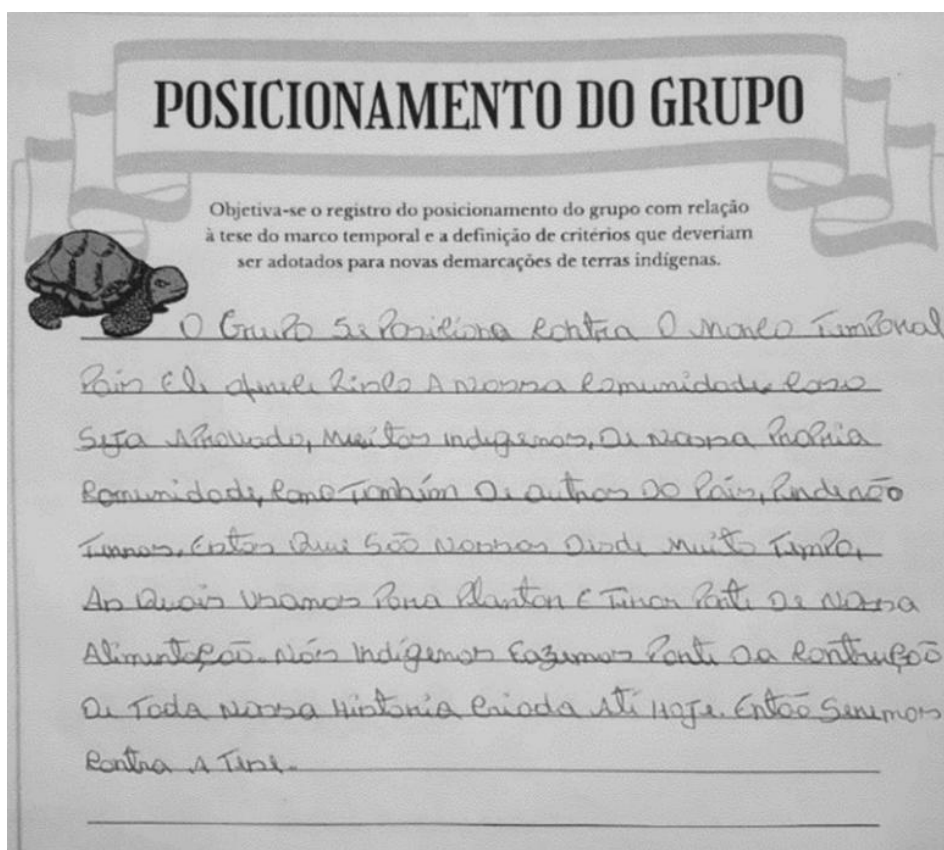 POSICIONAMENTO DO GRUPO
Objetiva-se o registro do posicionamento do grupo com relação
à tese do marco temporal e a definição de critérios que deveriam
ser adotados para novas demarcações de terras indígenas.
O Grupo Se Posiciona Contra O Marco Temporal
Pois Ele oferece Risco A Nossa Comunidade, Caso
Seja Aprovado, Muitos indigenas, De Nossa Propria
Comunidade, Como Também De outros Do País, Perderão
Terras, Estas Que São Nossas Desde Muito Tempo,
As Quais Usamos Para Plantar E Tirar Parte De Nossa
Alimentação. Nós Indígenas Fazemos Parte Da Contrução
De Toda Nossa Historia Criada Até Hoje. Então Seremos
Contra A Tese.